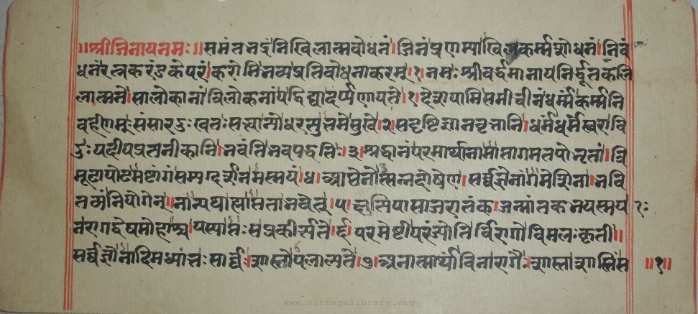 ॥श्रीजिनायनमः॥समंतभद्रंनिखिलात्मबोधनं।जिनंप्रणम्याखिलकर्म्मशोधनं।निबं
धनंरत्नकरंडकेपरं।करोमिभव्यप्रतिबोधनाकरम्।१।नमःश्रीवर्द्धमानायनिर्द्धूतकलि
लात्मने।सालोकानांत्रिलोकनांयद्विद्यादर्प्पणायते।१।देशयामिसमीचीनंधर्म्मंकर्म्मनि
वर्हणम्ःसंसारदुःखतःसत्वान्योधरत्युत्तमेसुखे।२।सदृष्टिज्ञानवृत्तानि।धर्मंधर्मेश्वरावि
दुःयदीयप्रत्यनीकानि।भवंतिभवपद्धतिः।३।श्रद्धानंपरमार्थानामाप्तागमतपोभृतां।त्रि
मूढापोढमष्टांगंसम्यग्दर्शनमस्मयं।४।आप्तेनोत्सन्नदोषेण।सर्व्वज्ञेनागमेशिना।भवि
तव्यंनियोगेन।नान्यथाह्याप्तताभवेत्।५।क्षुत्पिपासाजरातंक।जन्मांतकभयस्मयाः
नरागद्वेषमोहाश्च।यस्याप्तःसप्रकीर्त्यते।६।परमेष्टीपरंज्योतिर्विरागोविमलःकृती॥
सर्व्वज्ञोनादिमध्यांतःसार्व्वःशास्तोपलाल्यते।७।अनात्मार्थंविनारागैःशास्ताशास्तिस ॥१॥